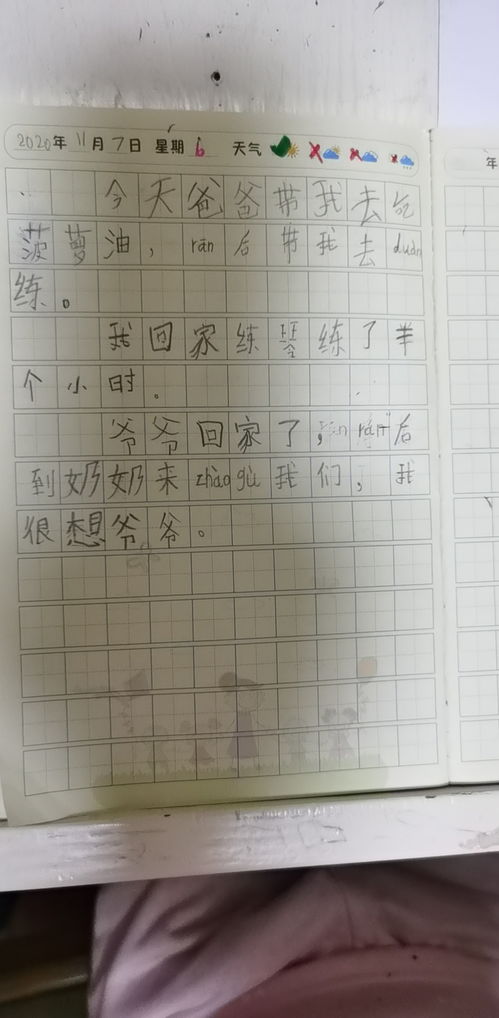 2020年 11月 7日 星期 6 天气
今天爸爸带我去吃
菠萝油，rán后带我去duàn
练。
我回家练琴练了半
个小时。
爷爷回家了，rán后
到奶奶来zhàogù我们，我
很想爷爷。
年